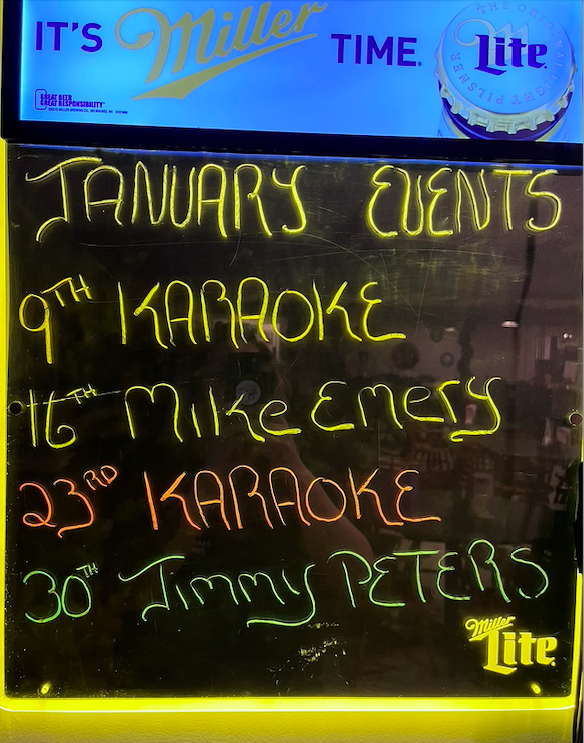 IT'S Miller TIME.
THE ORIGINAL LIGHT PILSNER
Lite
GREAT BEER
GREAT RESPONSIBILITY
JANUARY EVENTS
9TH KARAOKE
16TH Mike Emery
23RD KARAOKE
30TH Jimmy PETERS
Miller
Lite